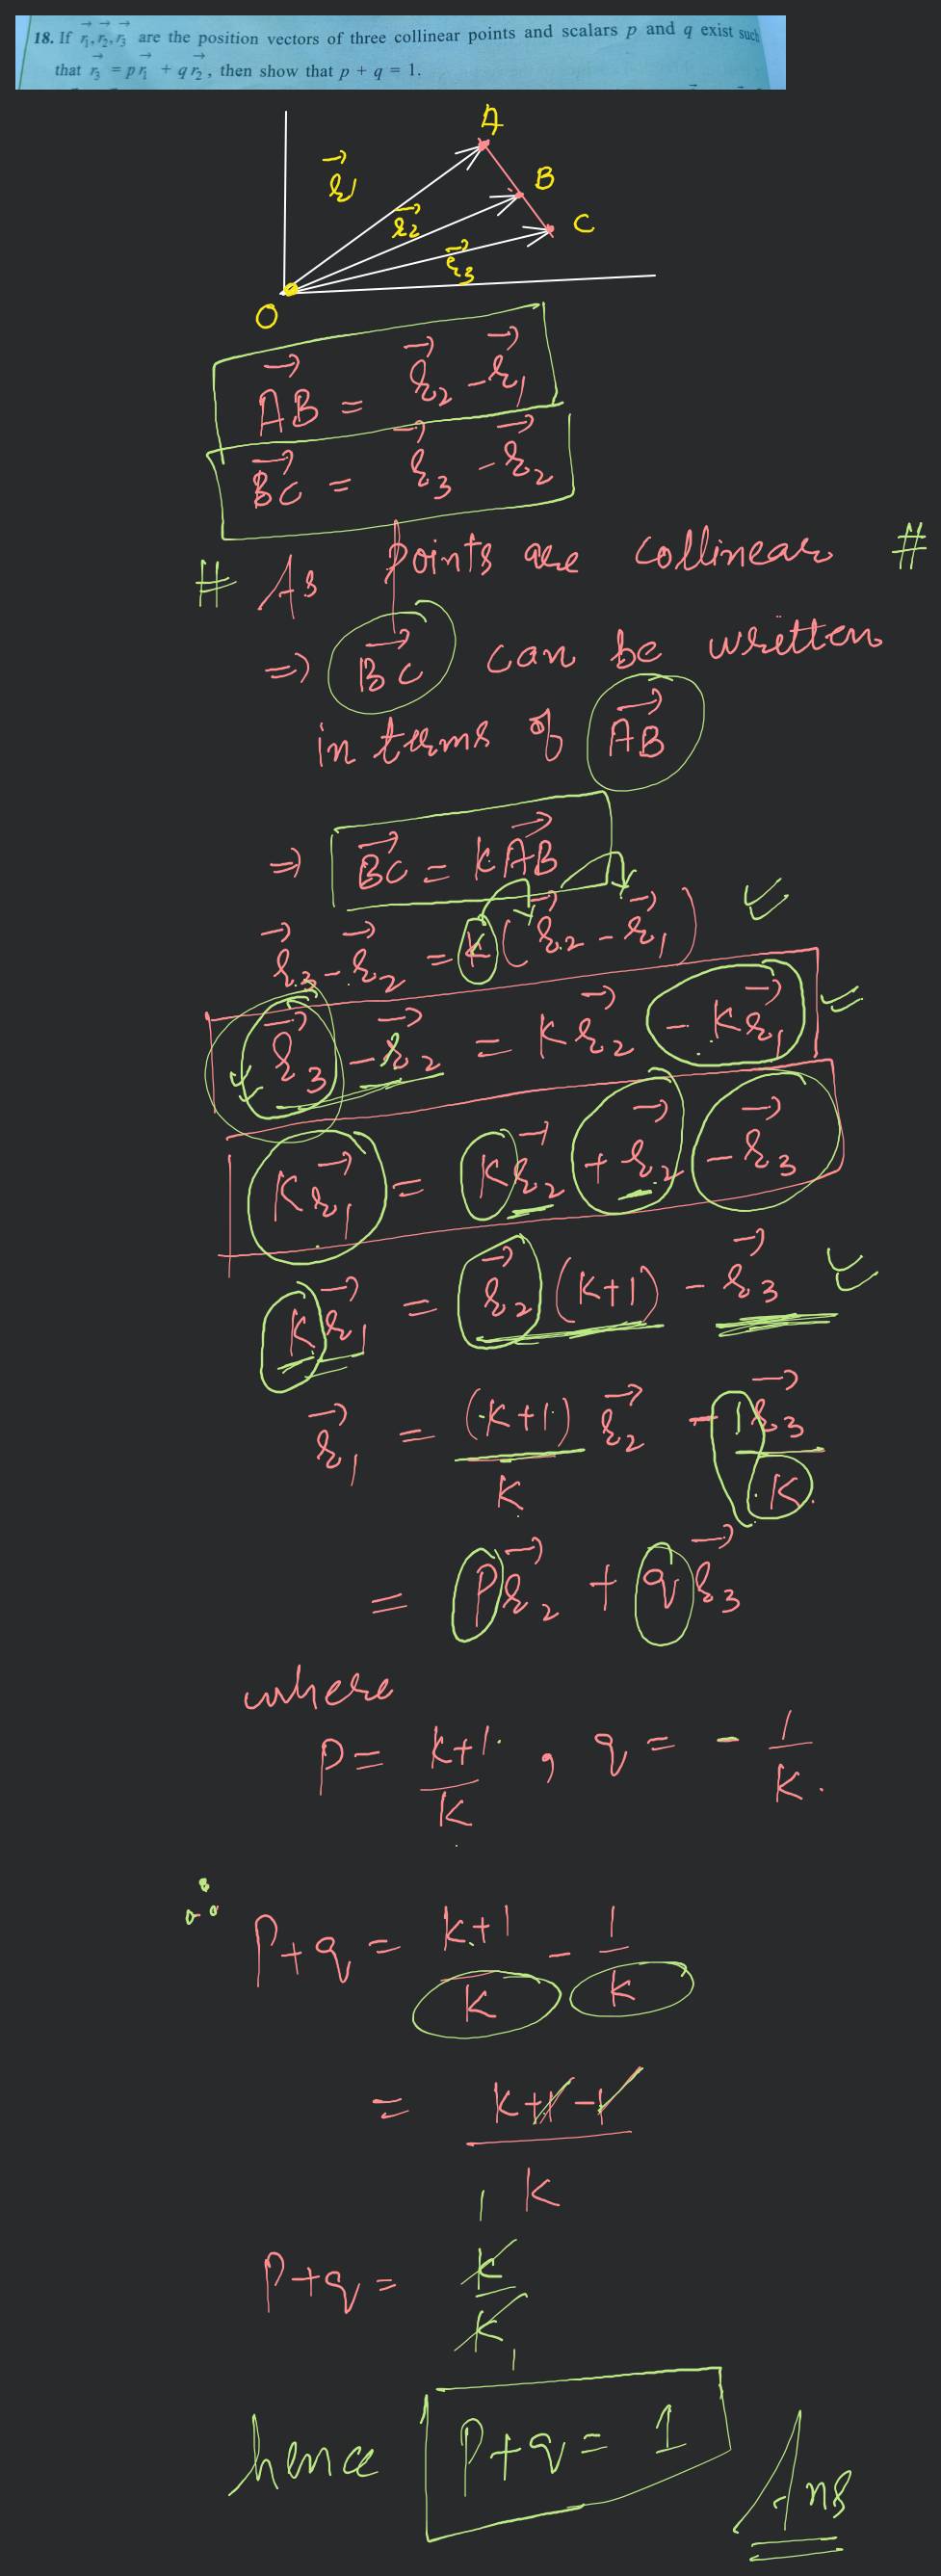 18. If r₁⃗, r₂⃗, r₃⃗ are the position vectors of three collinear points and scalars p and q exist such
that r₃⃗ = p r₁⃗ + q r₂⃗, then show that p + q = 1.
A
r₁⃗
B
r₂⃗
C
r₃⃗
O
AB⃗ = r₂⃗ - r₁⃗
BC⃗ = r₃⃗ - r₂⃗
# As points are collinear #
⇒ BC⃗ can be written
in terms of AB⃗
⇒ BC⃗ = k AB⃗
r₃⃗ - r₂⃗ = k ( r₂⃗ - r₁⃗ )
r₃⃗ - r₂⃗ = k r₂⃗ - k r₁⃗
k r₁⃗ = k r₂⃗ + r₂⃗ - r₃⃗
k r₁⃗ = r₂⃗ (k+1) - r₃⃗
r₁⃗ = (k+1)/k r₂⃗ - 1 r₃⃗/k
= p r₂⃗ + q r₃⃗
where
p = k+1/k , q = - 1/k
∴ p+q = k+1/k - 1/k
= k+1-1/k
p+q = k/k
hence p+q = 1 Ans